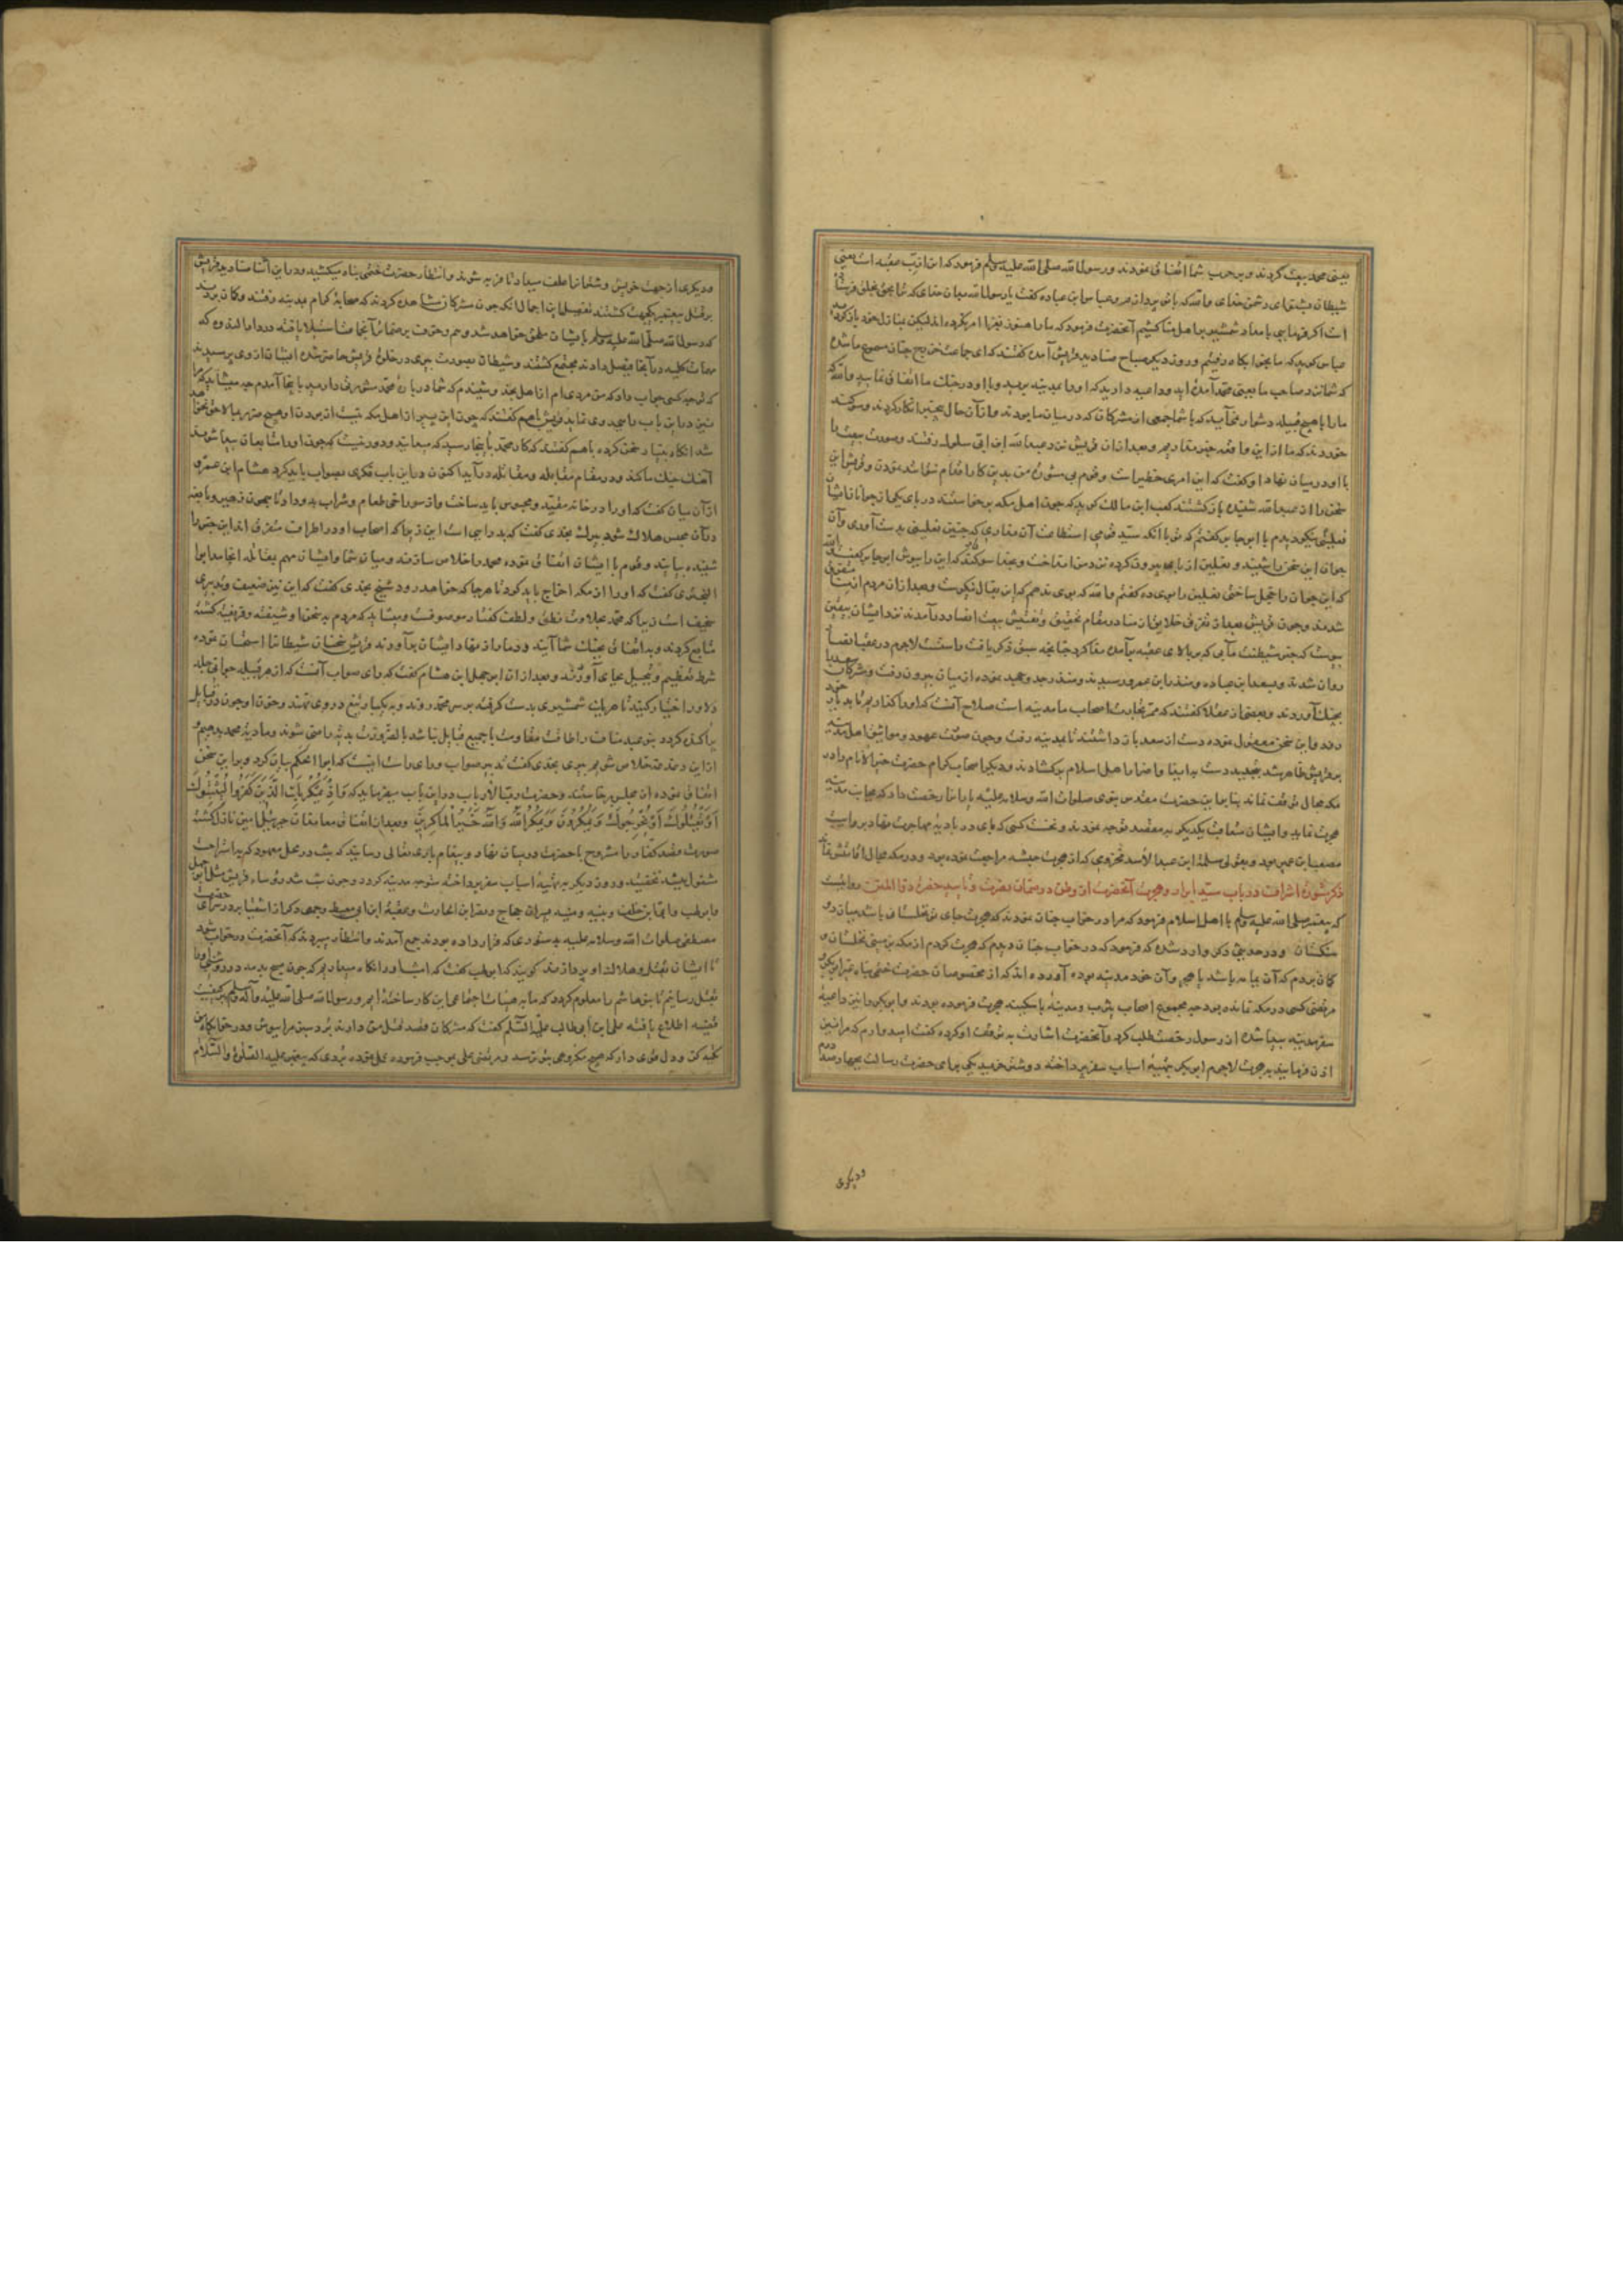 یعنی محمد بیعت کردند و بر حرب شما اتفاق نمودند و رسول الله صلی الله علیه وسلم فرمود که این ازب عقبه است یعنی
شیطان بشنو ای دشمن خدای والله که با تو پردازم و عباس ابن عباده گفت یا رسول الله بدان خدای که ترا بحق بخلق فرستاده
است اگر فرمایی بامداد شمشیر بر اهل منا کشیم آنحضرت فرمود که ما را هنوز بغزا امر نکرده اند لیکن بمنازل خود باز کردید
عباس کوید که ما بخوابکاه رفتیم و روز دیکر صباح صنادید قریش آمده گفتند که ای جماعت خزرج چنان مسموع ما شده
که شما نزد صاحب ما یعنی محمد آمده اید و داعیه دارید که او را بمدینه برید و با او در جنک ما اتفاق نمایید والله که
ما را با هیچ قبیله دشوار نمی آید که با شما جمعی از مشرکان که در میان ما بودند و از آن حال بیخبر انکار کردند و سوکند
خوردند که ما از این واقعه خبر نداریم و بعد از آن قریش نزد عبد الله ابن ابی سلول رفتند و صورت بیعت را
با او در میان نهاد او گفت که این امری خطیر است و قوم بی مشوره من بدین کار اقدام نتوانند نمود و قریش این
سخن را از عبد الله شنیده باز کشتند کعب ابن مالک کوید که چون اهل مکه برخاستند در پای یکی از جوانان ایشان
نعلینی نیکو دیدم با ابن جابر گفتم که تو با آنکه سید قومی استطاعت آن نداری که چنین نعلینی بدست آوری و آن
جوان این سخن را شنید و نعلین از پا بیرون کرده نزد من انداخت و بخدا سوکند که این را بپوش ابن جابر گفت والله
که این جوان را خجل ساختی نعلین را بوی ده گفتم والله که بوی ندهم که این بفال نیکوست و بعد از آن مردم از منا متفرق
شدند و چون قریش بعد از تفرق خلایق از منا در مقام تحقیق و تفتیش بیعت انصار در آمدند نزد ایشان بیقین
پیوست که خبر شیطنت مآبی که بر بالای عقبه بر آمده ندا کرد چنانچه سبق ذکر یافت راست است لاجرم در عقب انصار
روان شدند و بسعد ابن عباده و منذر ابن عمرو رسیدند و منذر جد و جهد نموده از میان بیرون رفت و مشرکان سعد را
بچنک آوردند و بعضی از عقلا گفتند که ممر تجارت اصحاب ما مدینه است صلاح آنست که او را کذاریم تا بدیار خود
رود و این سخن معقول نموده دست از سعد باز داشتند تا بمدینه رفت و چون صورت عهود و مواثیق اهل مدینه
بر قریش ظاهر شد بتجدید دست به ایذا و اضرار اهل اسلام بر کشادند و دیکر اصحاب کرام حضرت خیر الانام را در
مکه مجال توقف نماند بنابر این حضرت مقدس نبوی صلوات الله وسلامه علیه یارانرا رخصت داد که بجانب مدینه
هجرت نمایند و ایشان متعاقب یکدیکر به مقصد توجه نمودند و نخست کسی که پای در بادیه مهاجرت نهاد بروایت
مصعب ابن عمیر بود و بقولی سلمة ابن عبد الاسد مخزومی که از هجرت حبشه مراجعت نموده بود و در مکه مجال اقامتش
ذکر مشورۀ اشراف در باب سید ابرار و هجرت آنحضرت از وطن دوستان بنصرت و تایید حضرت ذوالمنن روایتست
که پیغمبر صلی الله علیه وسلم با اهل اسلام فرمود که مرا در خواب چنان نمودند که هجرت جای تو نخلستانی باشد میان دو
سنکستان و در حدیثی دیگر وارد شده که فرمود که در خواب چنان دیدم که هجرت کردم از مکه بزمینی نخلستان و
کمان بردم که آن یمامه باشد یا هجر و آن خود مدینه بوده آورده اند که از مخصوصان حضرت ختمی پناه بغیر ابو بکر و
مرتضی کسی در مکه نمانده بود چه مجموع اصحاب یثرب و مدینه یا سکینه هجرت فرموده بودند و ابو بکر را نیز داعیۀ
سفر مدینه پیدا شده از رسول رخصت طلب کرد و آنحضرت اشارت به توقف او کرده گفت امید دارم که مرا نیز
اذن فرمایند به هجرت لاجرم ابو بکر بتهیه اسباب سفر پرداخته دو شتر خرید یکی برای حضرت رسالت بچهار صد درم
و دیکری
و دیکری از جهت خویش و شتران را علف میداد تا فربه شوند و انتظار حضرت ختمی پناه میکشید و در این اثنا صنادید قریش
بر قتل پیغمبر یکجهت کشتند تفصیل این اجمال آنکه چون مشرکان مشاهده کردند که صحابه کرام بمدینه رفتند و کمان بردند
که رسول الله صلی الله علیه وسلم بایشان ملحق خواهد شد
مهمات کلیه در آنجا فیصل دادند مجتمع کشتند و شیطان بصورت پیری در خلوت قریش حاضر شده ایشان از وی پرسیدند
که تو چه کسی جواب داد که من مردی ام از اهل نجد و شنیدم که شما در باره محمد مشورتی دارید باینجا آمدم چه میشاید که مرا
نیز در این باب رأیی روی نماید قریش باهم گفتند که چون این پیر از اهل مکه نیست از بودن او هیچ ضرر بما لاحق نخواهد
شد آنکاه بنیاد سخن کرده باهم گفتند که کار محمد بآنجا رسید که میدانید و دور نیست که چون او را متابعان پیدا شوند
آهنک جنک ما کند و در مقام مقابله و مقاتله در آید اکنون در این باب فکری بصواب باید کرد هشام ابن عمرو
از آن میان گفت که او را در خانه مقید و محبوس باید ساخت و از سوراخی طعام و شراب بدو داد تا همچون زهیر و نابغه
در آن محبس هلاک شود پیر نجدی گفت که بد رایی است این زیرا که اصحاب او در اطراف متفرق اند این خبر را
شنیده بیایند و قوم با ایشان اتفاق نموده محمد را خلاص سازند و میان شما و ایشان مهم بقتال انجامد ابو
البختری گفت که او را از مکه اخراج باید کرد تا هر جا که خواهد رود شیخ نجدی گفت که این نیز ضعیف و تدبیری
سخیف است زیرا که محمد بحلاوت نطق و لطف گفتار موصوفست و میشاید که مردم به سخن او شیفته و فریفته کشته
متابع کردند و بد اتفاق بجنک شما آیند و دمار از نهاد ایشان بر آورند قریش سخنان شیطان را استحسان نموده
شرط تعظیم و تبجیل بجای آوردند و بعد از آن ابو جهل ابن هشام گفت که رای صواب آنست که از هر قبیله جوانی جلد
دلاور اختیار کنید تا هر یک شمشیری بدست کرفته بر سر محمد روند و به یکبار تیغ در وی نهند و خون او چون در قبایل
پراکنده کردد بنی عبد مناف را طاقت مقاومت با جمیع قبایل نباشد بالضرورت بدیه راضی شوند و ما دیه محمد بدهیم و
از این دغدغه خلاص شویم پیر نجدی گفت تدبیر صواب و رای راست اینست که ابو الحکم بیان کرد و بر این سخن
اتفاق نموده از مجلس برخاستند و حضرت رب الارباب در این باب میفرماید که وَاِذْ یَمْکُرُ بِکَ الَّذِینَ کَفَرُوا لِیُثْبِتُوکَ
اَوْ یَقْتُلُوکَ اَوْ یُخْرِجُوکَ وَیَمْکُرُونَ وَیَمْکُرُ اللّٰهُ وَاللّٰهُ خَیْرُ الْمَاکِرِینَ و بعد از اتفاق معاندان جبرئیل امین نازل کشته
صورت قصد کفار را مشروح با حضرت در میان نهاد و پیغام باری تعالی رسانید که شب در محل معهود که به استراحت
مشغول میشد نخفتید و روز دیکر به تهیه اسباب سفر پرداخته متوجه مدینه کردد و چون شب شد رؤساء قریش مثل ابو جهل
و ابو لهب و ابی ابن خلف و نبیه و منبه پسران حجاج و نضر ابن الحارث و عقبة ابن ابی معیط و جمعی دکر از اشقیا بر در سرای حضرت
مصطفی صلوات الله وسلامه علیه به دستوری که قرار داده بودند جمع آمدند و انتظار میبردند که آنحضرت در خواب شود
تا ایشان بقتل و هلاک او پردازند کویند که ابو لهب گفت که امشب او را نکاه میداریم که چون صبح بدمد
بقتل رسانیم تا بنی هاشم را معلوم کردد که ما به هیئات اجتماعی این کار ساخته ایم و رسول الله صلی الله علیه وآله وسلم بر کیفیت
قضیه اطلاع یافته علی ابن ابی طالب علیه السلام گفت که مشرکان قصد قتل من دارند برد سبز مرا بپوش و در خوابکاه من
تکیه کن و دل قوی دار که هیچ مکروهی بتو نرسد و مرتضی علی بموجب فرموده عمل نموده بردی که پیغمبر علیه الصلوة والسلام